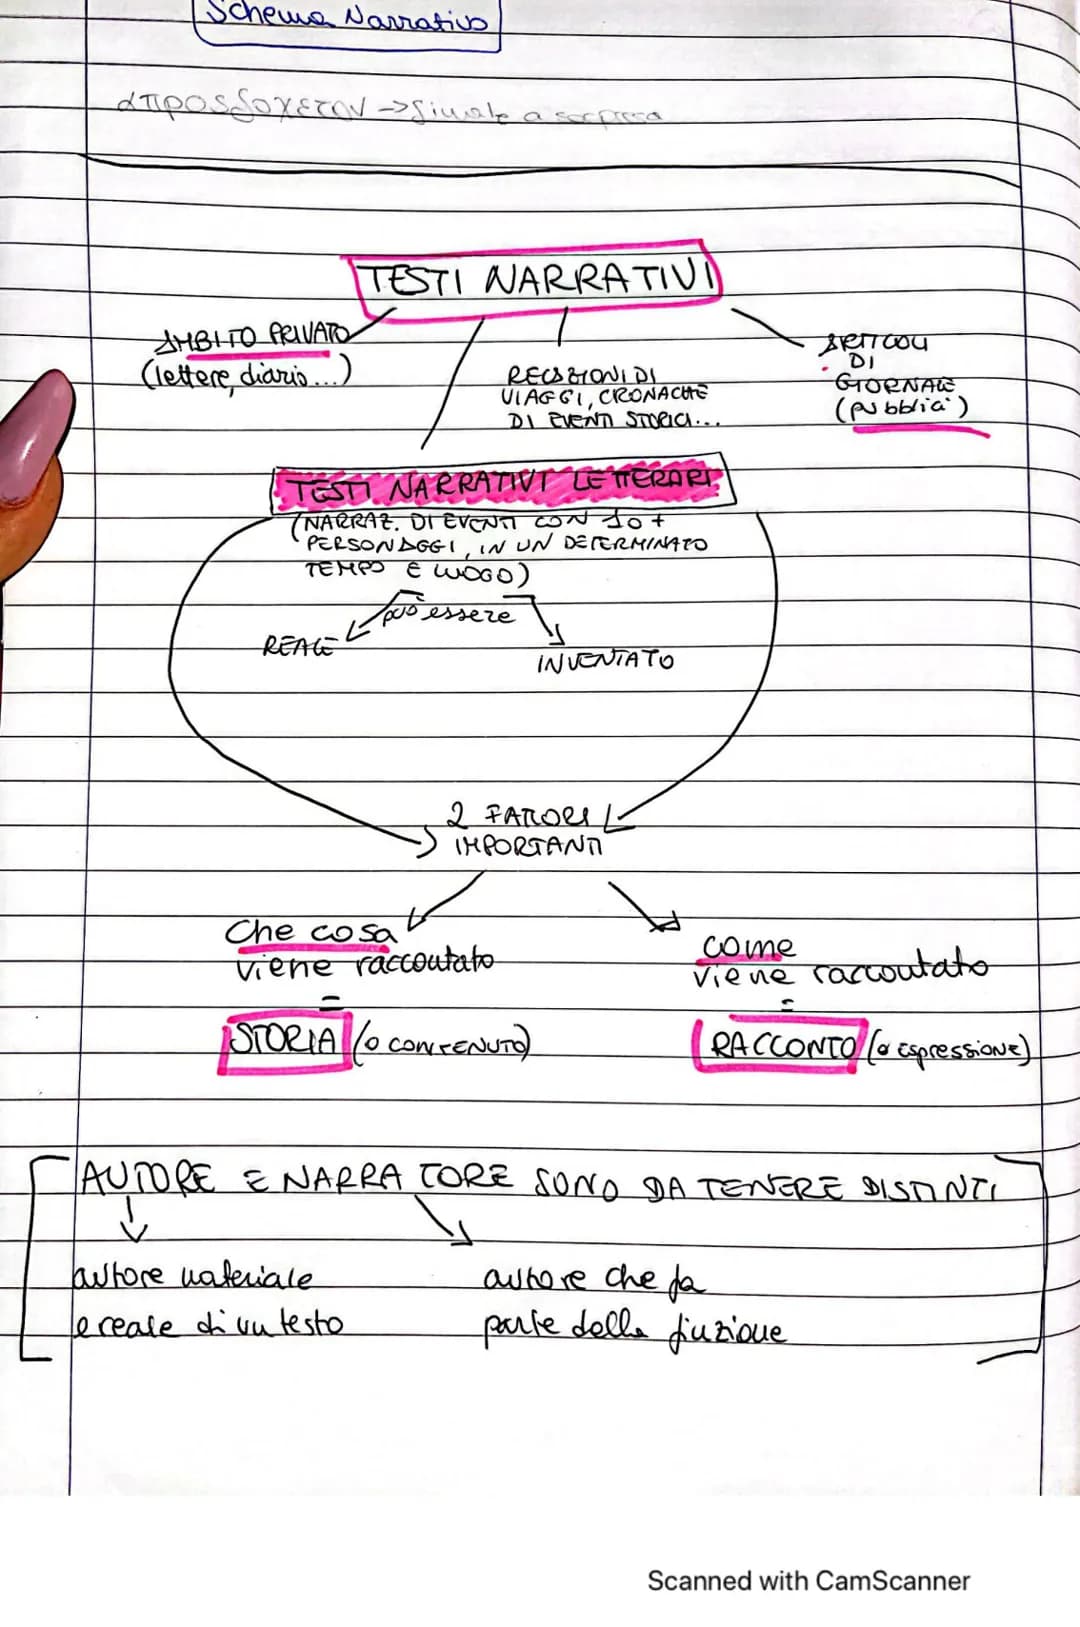 Schema Narrativo
απροσδοχετον -> finale a sorpresa
TESTI NARRATIVI
AMBITO PRIVATO
(lettere, diario...)
RECAZIONI DI
VIAGGI, CRONACHE
DI EVENTI STORICI...
ARTICOLI
DI
GIORNALE
(pubblici)
TESTI NARRATIVI LETTERARI
(NARRAZ. DI EVENTI CON 1 o +
PERSONAGGI, IN UN DETERMINATO
TEMPO E LUOGO)
può essere
REALE
INVENTATO
2 FATTORI
IMPORTANTI
Che cosa
viene raccontato
=
STORIA (o CONTENUTO)
come
viene raccontato
=
RACCONTO (o Espressione)
AUTORE E NARRATORE SONO DA TENERE DISTINTI
autore materiale
e reale di un testo
autore che fa
parte della finzione
Scanned with CamScanner